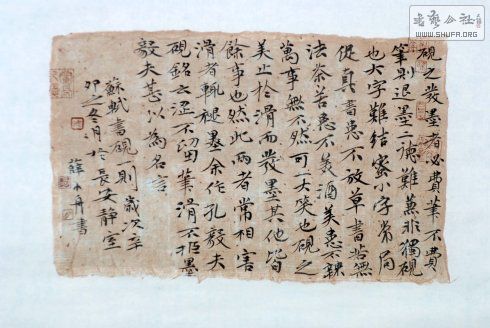 硯之發墨者必費筆不費
筆則退墨二德難兼非獨硯
也大字難結密小字常局
促真書患不放草書苦無
法茶苦患不美酒美患不辣
萬事無不然可一大笑也硯之
美止於滑而發墨其他皆
餘事也然此兩者常相害
滑者輒褪墨余作孔毅夫
硯銘云涩不留筆滑不拒墨
毅夫甚以為名言
蘇軾書硯則歲次辛
卯之冬月於長安靜室
薛舟書
WWW.SHUFA.ORG